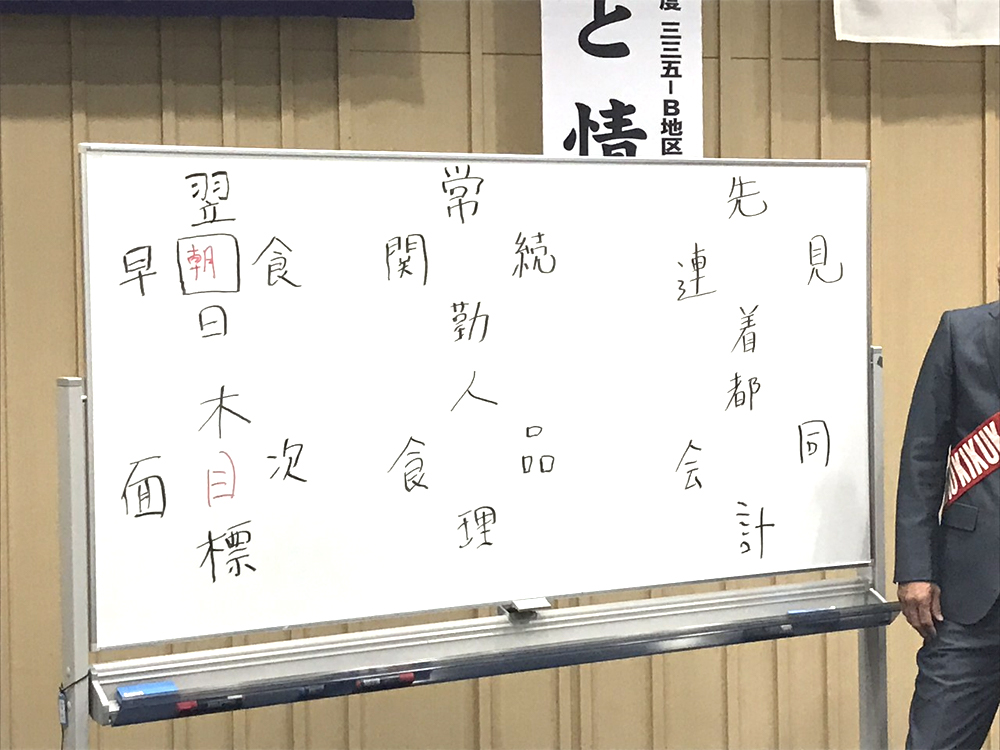 と情
度 三三五-B地区
翌
早 朝 食
日
常
関 続
勤
先
連 見
着
木
面 目 次
標
人
食 品
理
都
会 同
計
OKIKUK